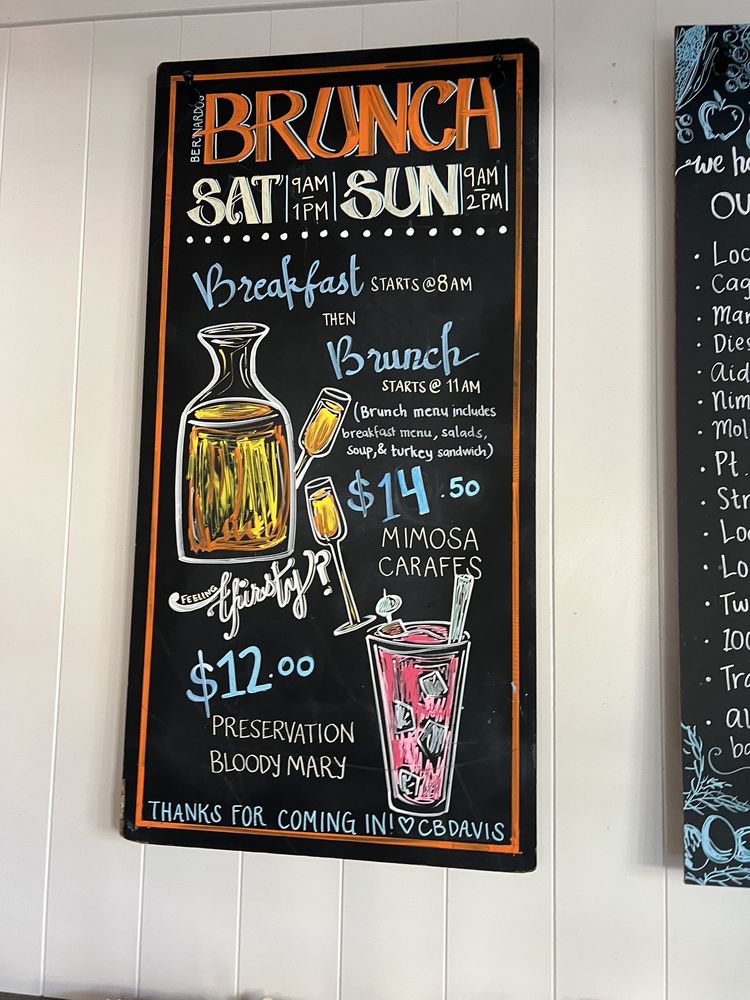 BERNARDO'S
BRUNCH
SAT 9AM – 1PM SUN 9AM – 2PM
Breakfast STARTS @ 8AM
THEN
Brunch
STARTS @ 11AM
(Brunch menu includes
breakfast menu, salads,
soup, & turkey sandwich)
$14.50
MIMOSA
CARAFES
FEELING thirsty?
$12.00
PRESERVATION
BLOODY MARY
THANKS FOR COMING IN! ♡ CBDAVIS
we
OU
• Loc
• Cag
• Mar
• Dies
• Aid
• Nim
• Mol
• Pt.
• Str
• Loc
• Lo
• Tw
• 100
• Tra
• al
ba